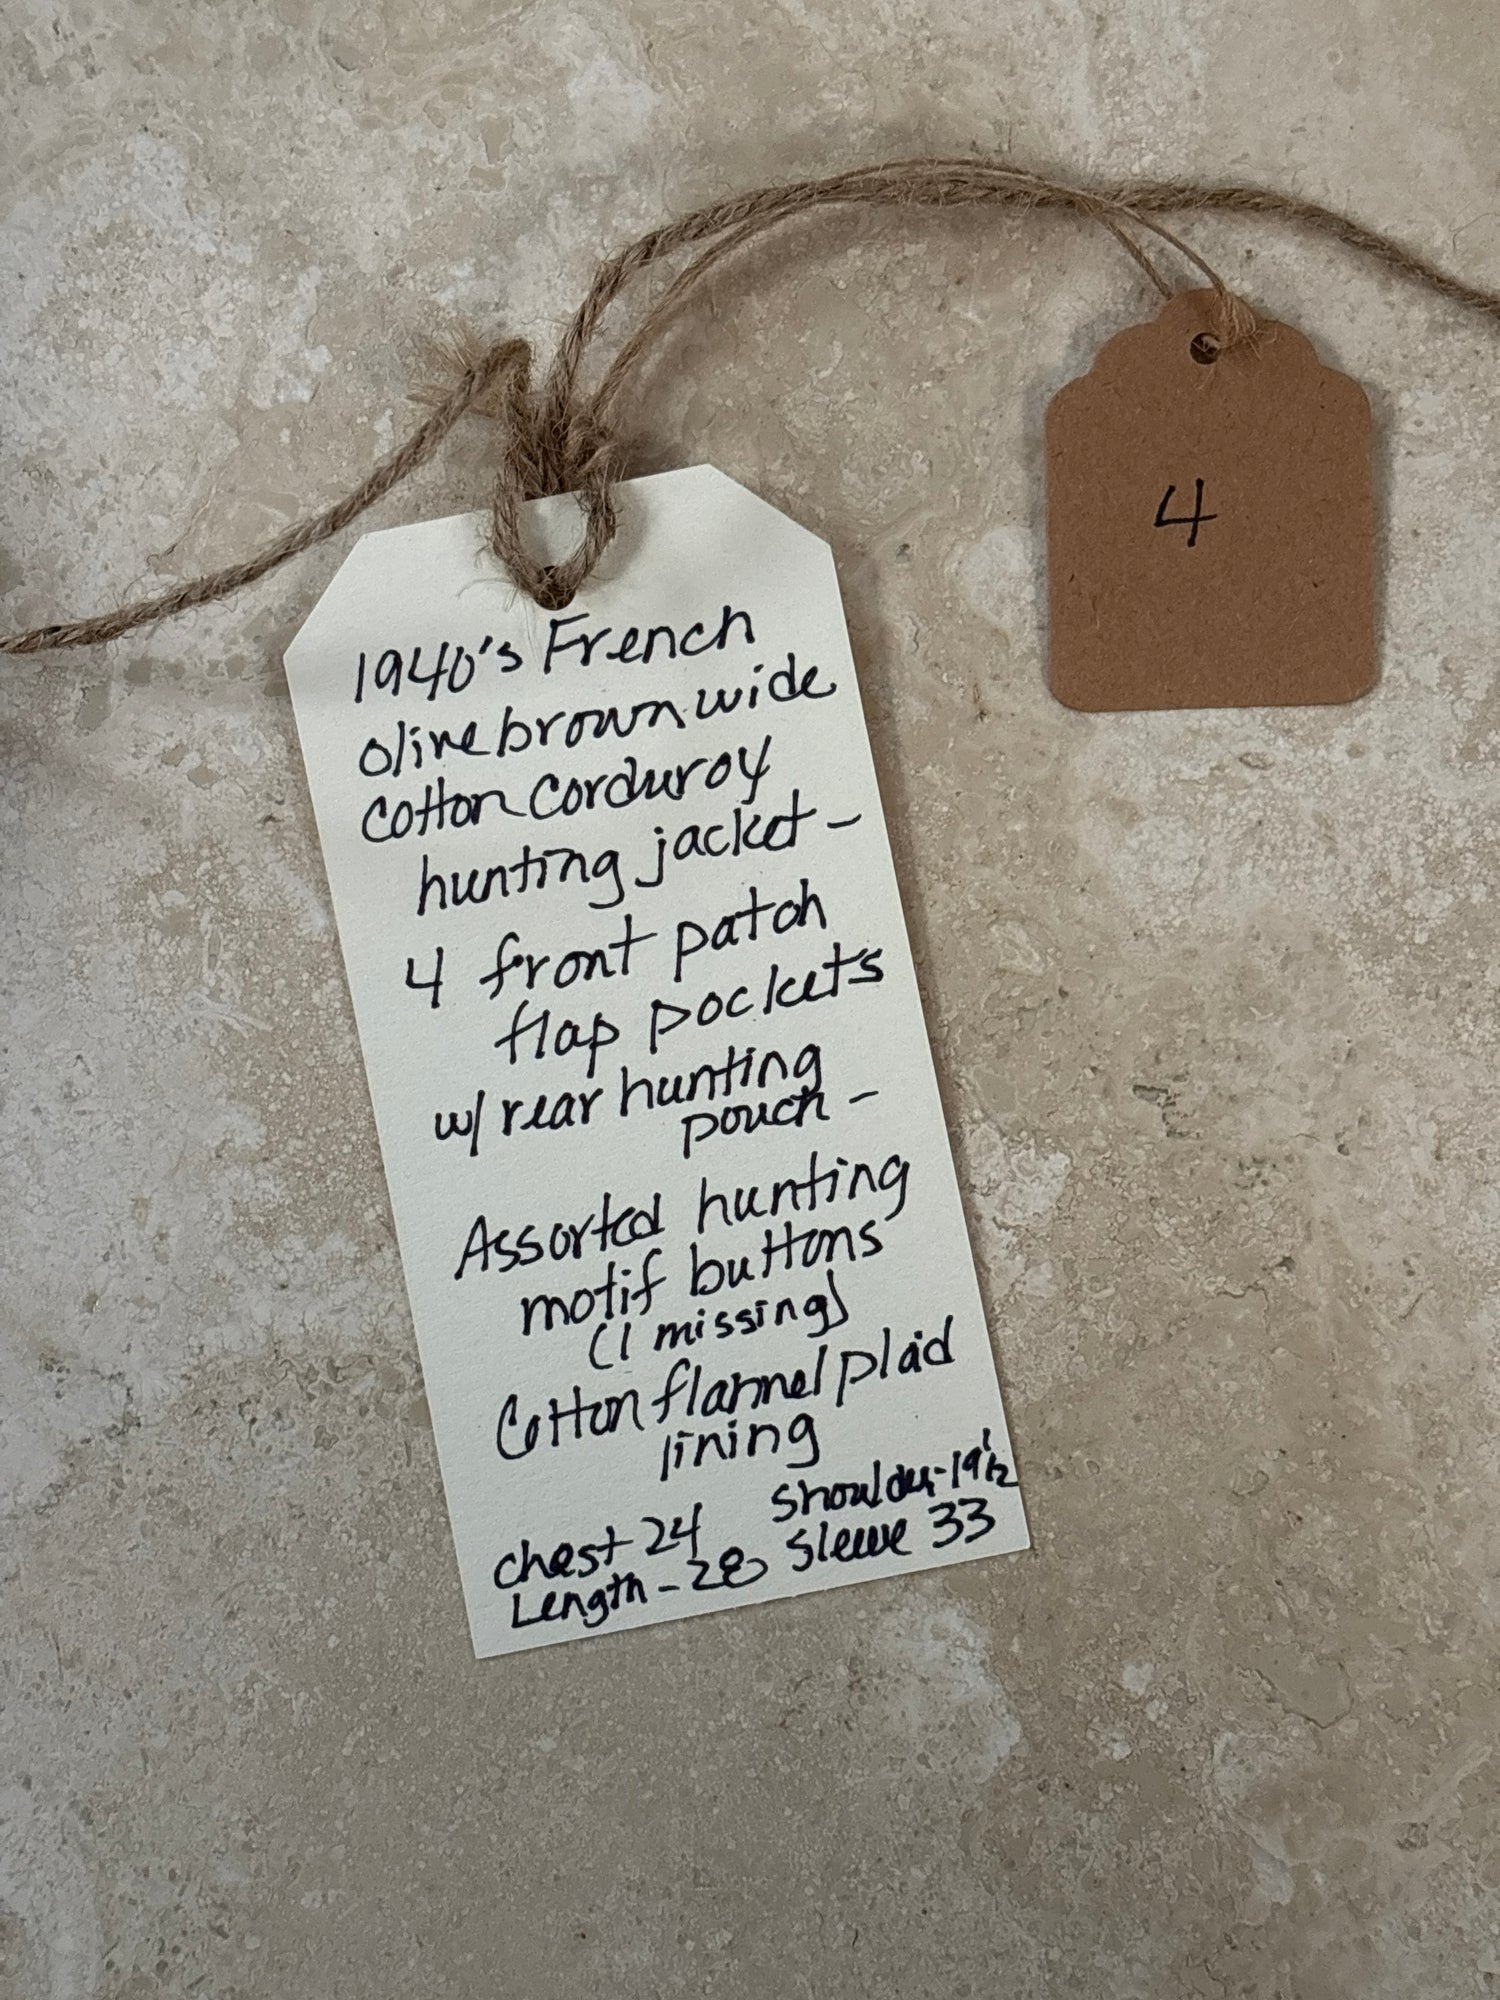 1940's French
olive brown wide
cotton corduroy
hunting jacket -
4 front patch
flap pockets
w/ rear hunting
pouch -
Assorted hunting
motif buttons
(1 missing)
Cotton flannel plaid
lining
Shoulder-19 1/2
Chest 24
Sleeve 33
Length - 28
4